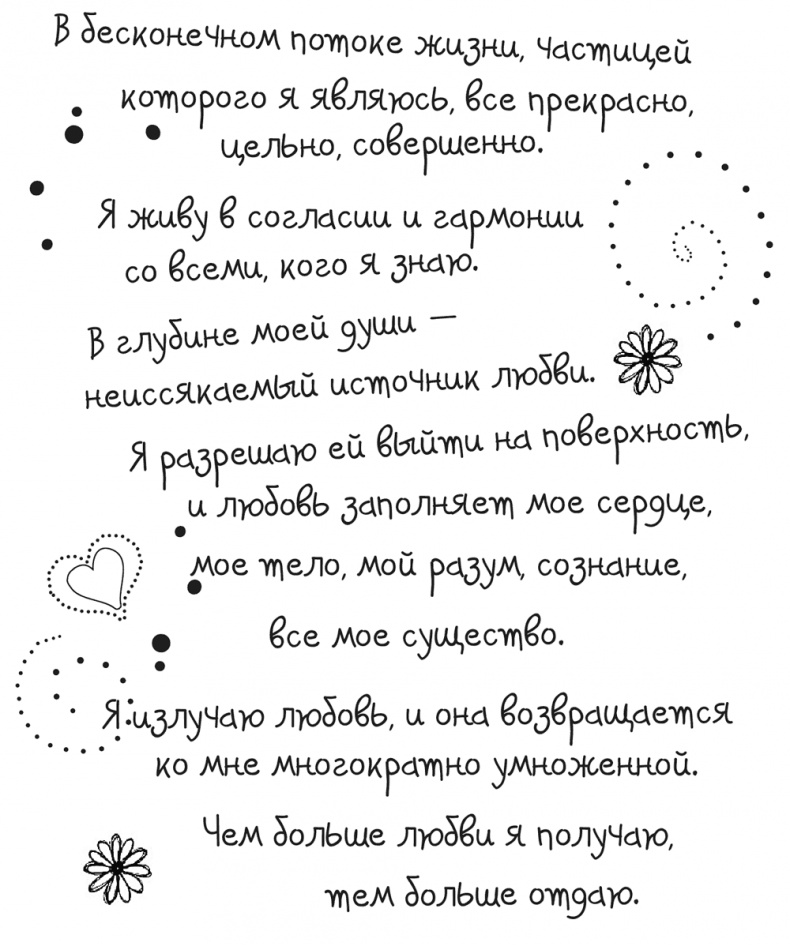 В бесконечном потоке жизни, частицей
которого я являюсь, все прекрасно,
цельно, совершенно.
Я живу в согласии и гармонии
со всеми, кого я знаю.
В глубине моей души —
неиссякаемый источник любви.
Я разрешаю ей выйти на поверхность,
и любовь заполняет мое сердце,
мое тело, мой разум, сознание,
все мое существо.
Я излучаю любовь, и она возвращается
ко мне многократно умноженной.
Чем больше любви я получаю,
тем больше отдаю.